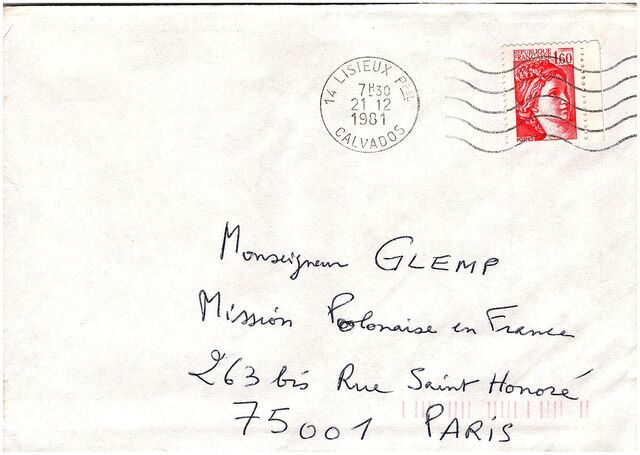 14 LISIEUX Pal
7H30
21 12
1981
CALVADOS
REPUBLIQUE
FRANÇAISE 1,60
POSTES
Monseigneur GLEMP
Mission Polonaise en France
263 bis Rue Saint Honoré
75001 PARIS